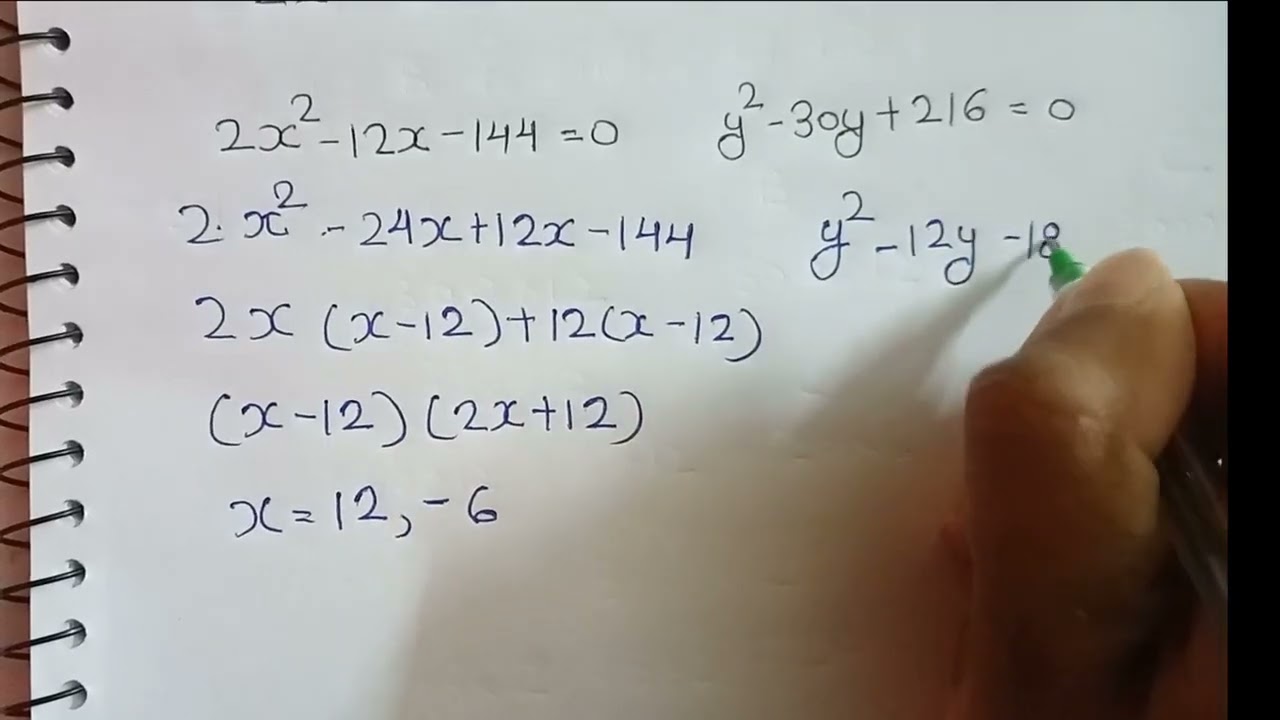 2x² - 12x - 144 = 0
2. x² - 24x + 12x - 144
2x (x - 12) + 12(x - 12)
(x - 12) (2x + 12)
x = 12, - 6
y² - 30y + 216 = 0
y² - 12y - 18